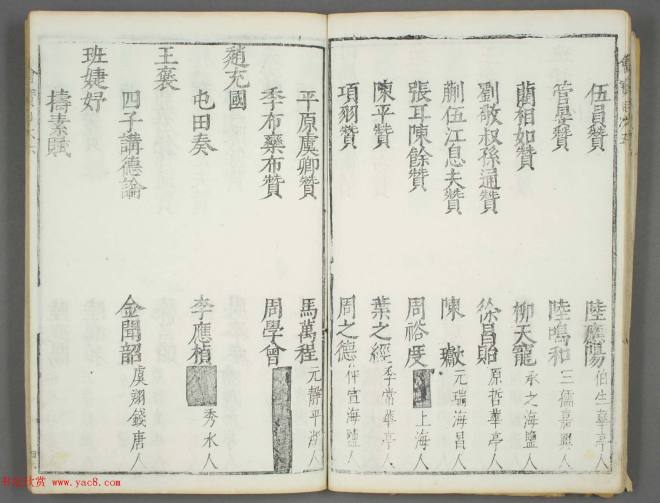 伍員贊 陸應陽 伯生華亭人
管晏贊 陸鳴和 三儒嘉興人
藺相如贊 柳天寵 承之海鹽人
劉敬叔孫通贊 徐昌貽 原哲華亭人
蒯伍江息夫贊 陳 元瑞海昌人
張耳陳餘贊 周裕度 上海人
陳平贊 葉之經 季常華亭人
項羽贊 周之德 仲宣海鹽人
平原虞卿贊 馬萬程 元靜平湖人
季布欒布贊 周學會
趙充國
屯田奏 李應楨 秀水人
王襃
四子講德論 金聞韶 虞翔錢唐人
班婕妤
擣素賦
www.yac8.com